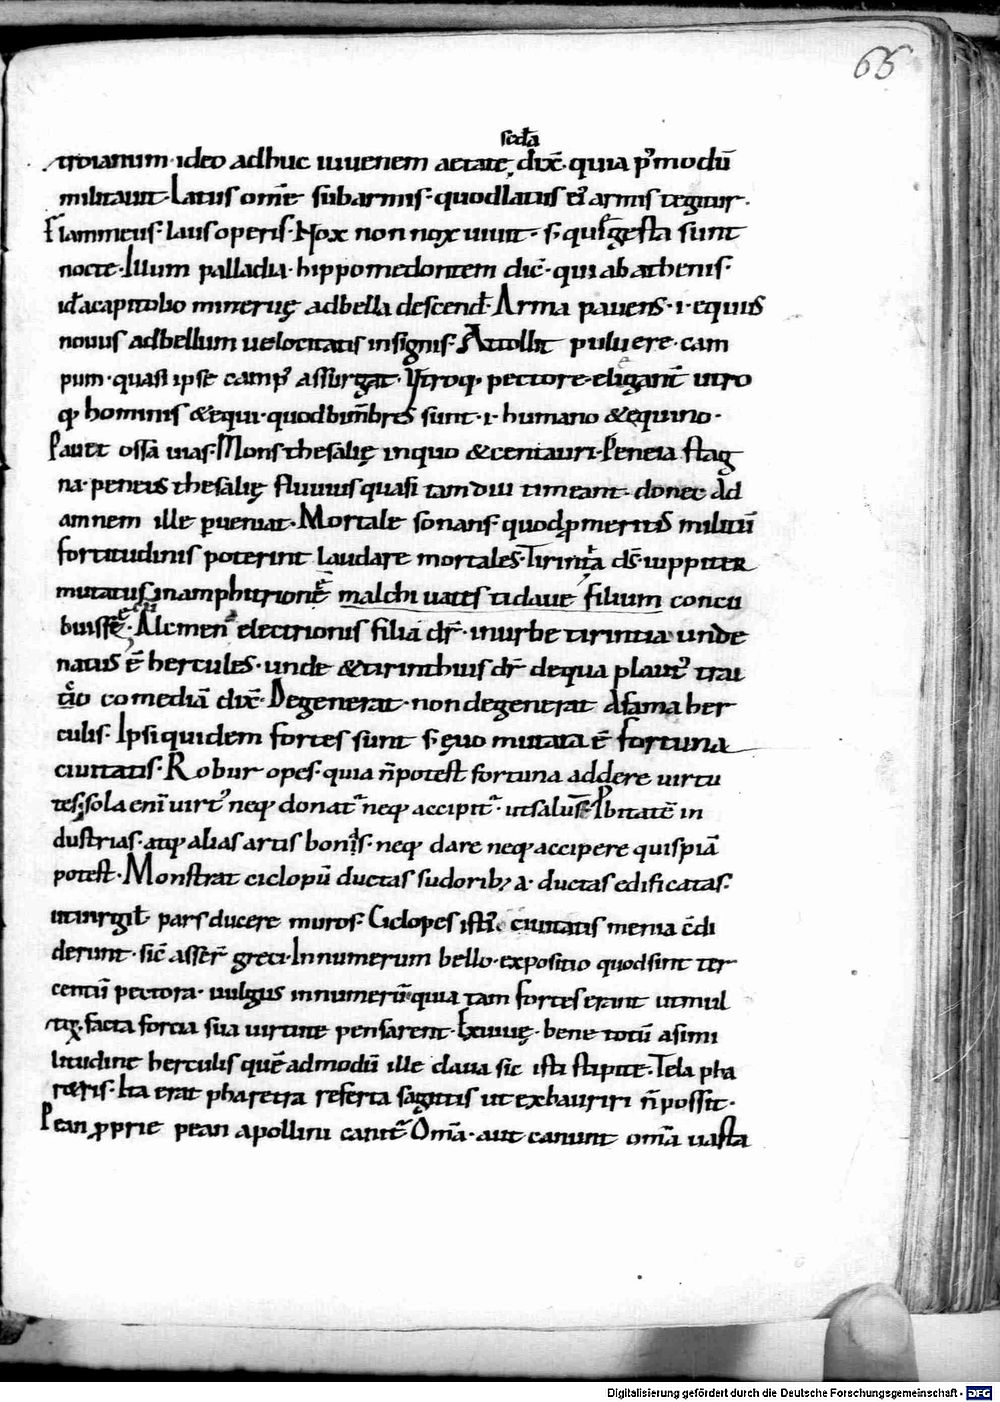 65
scdā
troianum · ideo adhuc iuuenem aetate, dix̄ · quia p̄modū
militauit · Latus om̄e subarmis · quodlatus ei᷒ armis tegitur ·
Flammeus · laus operis · Nox non nox uiuit · s · quę gesta sunt
nocte · Illum palladia · hippomedontem dic̄ · qui ab athenis ·
id ē acapitolio mineruę adbella descend̄ · Arma pauens · i · equus
nouus adbellum uelocitatis insignis · Attollit puluere · cam
pum · quasi ipse camp᷒ assurgat · Vtroq; pectore · eligant̄ utro
q; hominis & equi · quodbimēbres sunt · i · humano & equino ·
Pauet ossā uias · Mons thesalię inquo & centauri · Peneia stag
na · peneus thesalię fluuius quasi tamdiu timeant · donec ad
amnem ille ꝑueniat · Mortale sonans · quod ꝓmeritis militū
fortitudinis poterint laudare mortales · Tirintia ds̄ · iuppiter
mutatus inamphitrionē malchi uates tidaue filium concu
buisse · Alcmen electrionis filiā dr̄ · inurbe tirintia unde
natus ē hercules · unde & tirinthius dr̄ dequa plaut᷒ trai
co comediā dix̄ · Degenerat · non degenerat a fama her
culis · Ipsi quidem fortes sunt s · ęuo mutata ē fortuna
ciuitatis · Robur opes · quia n̄potest fortuna addere uirtu
tes · sola enī uirt᷒ neq; donat᷑ neq; accipit᷑ · ut salus · ꝓbitatē in
dustrias · atq; alias artis bonas · neq; dare neq; accipere quispiā
potest · Monstrat ciclopū ductas sudorib; a · ductas edificatas ·
ut uirgil̄ · pars ducere muros · Ciclopes isti᷒ ciuitatis menia c̄di
derunt · sic̄ asser̄ greci · Innumerum bello · expositio quod sint ter
centū pectora · uulgus innumerū quia tam fortes erant ut mul
tix · facta fortia sua uirtute pensarent · Exuuię · bene totū asimi
litudine herculis quēadmodū ille claua sic isti stipite · Tela pha
retris · Ita erat pharetra referta sagittis ut exhauriri n̄possit ·
Pean ꝓprie pean apollini canit᷑ Om̄a · aut canunt om̄a uasta
Digitalisierung gefördert durch die Deutsche Forschungsgemeinschaft - DFG